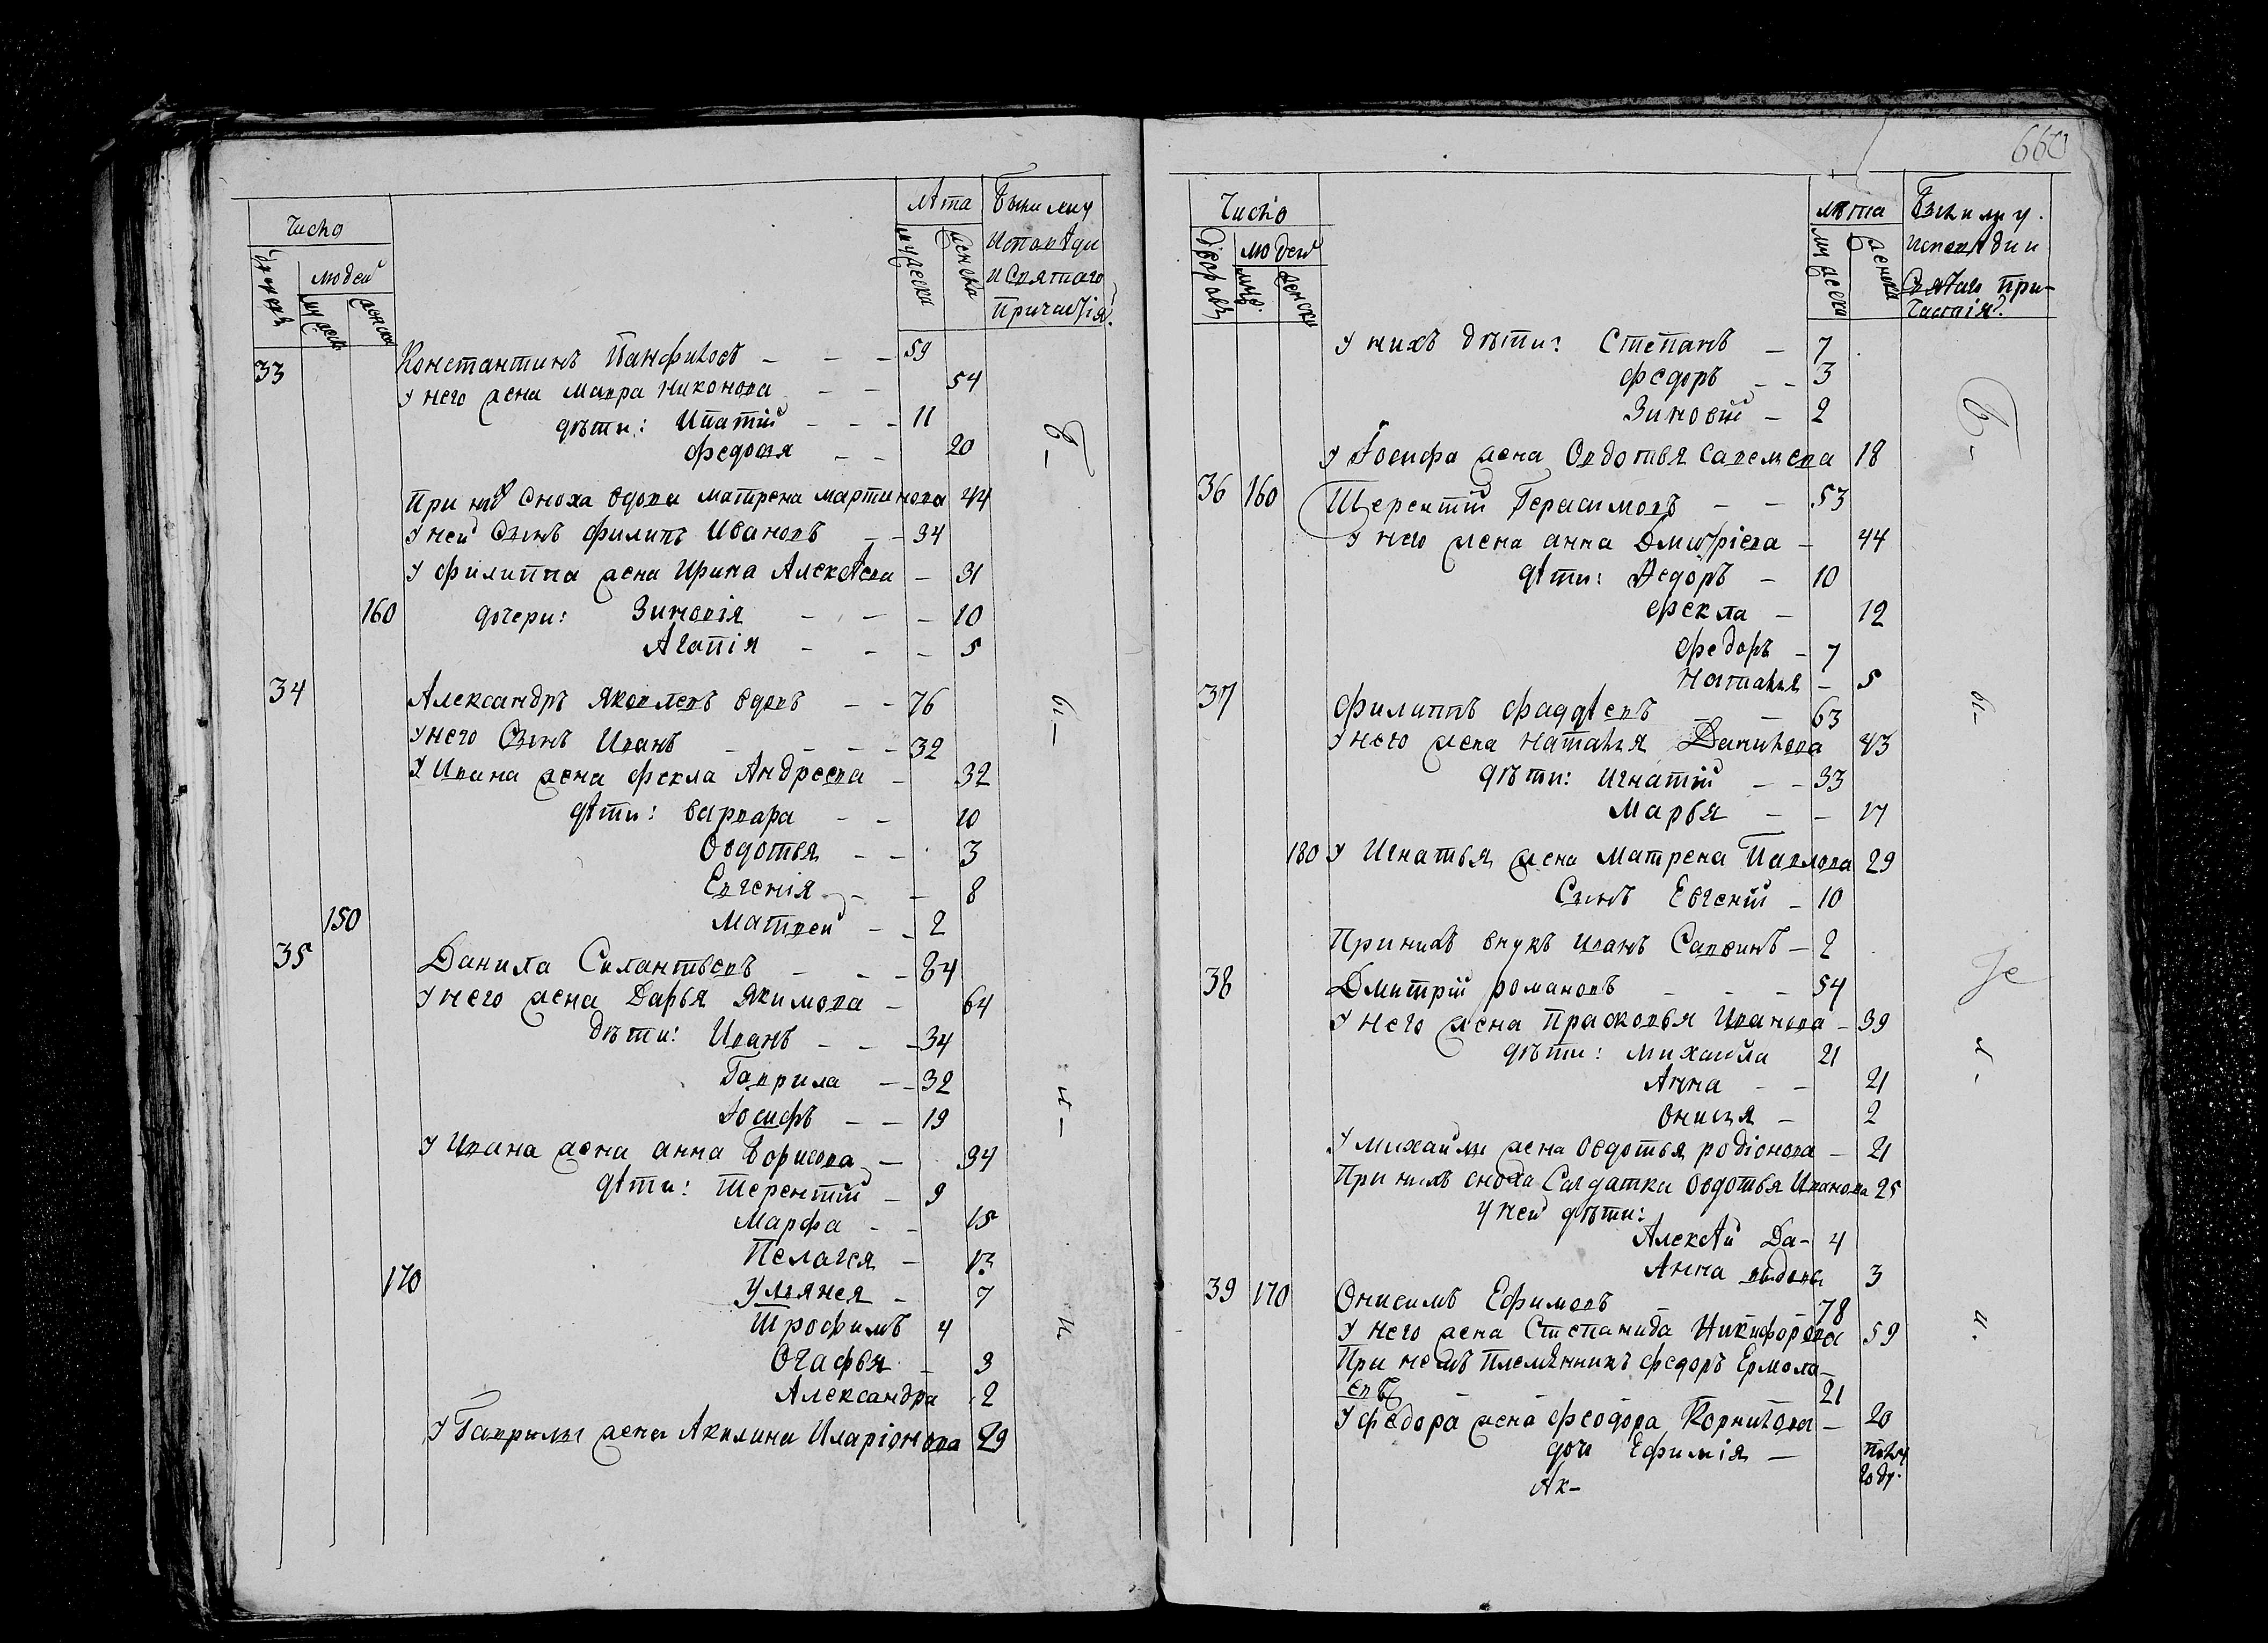 Число
Лѣта
Были ли у
Исповѣди
и Святаго
Причастія?
людей
мужеска
женска
33 Константинъ Панфиловъ - - - 59
У него жена Мавра Никонова - - 54
дѣти: Ипатій - - - 11
Федосья - - 20
При нихъ сноха вдова Матрена Мартинова 44
У ней сынъ Филипъ Ивановъ - - 34
У Филиппа жена Ирина Алексѣева - 31
160 дочери: Зиновія - - - 10
Агапія - - - 5
34 Александръ Яковлевъ вдовъ - - 76
У него сынъ Иванъ - - - - 32
У Ивана жена Фекла Андреева - 32
дѣти: Варвара - - 10
Овдотья - - 3
Евгенія - - 8
150 Матвей - - 2
35 Данила Силантьевъ - - - 84
У него жена Дарья Якимова - 64
дѣти: Иванъ - - - 34
Гаврила - - 32
Іосифъ - - 19
У Ивана жена Анна Борисова - 34
дѣти: Терентій - 9
Марфа - - 15
Пелагея - 13
170 Ульянея - 7
Трофимъ 4
Огафья - 3
Александра 2
У Гаврилы жена Акилина Иларіонова 29
б-
ы-
л-
и
660
Число
Лѣта
Были ли у
исповѣди и
Святаго при-
частія?
дворовъ
людей
муже.
женски
мужеска
женска
У нихъ дѣти: Степанъ - 7
Федоръ - - 3
Зиновій - 2
У Іосифа жена Овдотья Савельева 18
36 160 Терентій Герасимовъ - - 53
У него жена Анна Дмитріева - 44
дѣти: Федоръ - 10
Фекла - 12
Федоръ - 7
Наталья - 5
37 Филиппъ Фаддѣевъ - - 63
У него жена Наталья Данилова 43
дѣти: Игнатій - - 33
Марья - - 17
180 У Игнатья жена Матрена Павлова 29
Сынъ Евгеній - 10
При нихъ внукъ Иванъ Саввинъ - 2
38 Дмитрій Романовъ - - - 54
У него жена Прасковья Иванова - 39
дѣти: Михайла 21
Анна - - 21
Онисья - 2
У Михайлы жена Овдотья Родіонова - 21
При нихъ сноха Салдатка Овдотья Иванова 25
У ней дѣти:
Алексѣй Да- 4
Анна выдовы 3
39 170 Онисимъ Ефимовъ - - - 78
У него жена Степанида Никифорова 59
При немъ племянникъ Федоръ Ермола-
евъ - - - 21
У Федора жена Феодора Корнилова - 20
дочь Ефимія - полу
году.
Ак-
б-
ы-
л-
и.